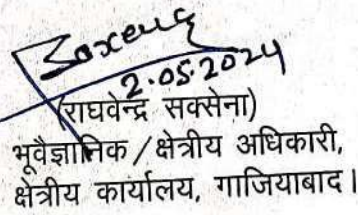 Saxena
2.05.2024
(राघवेन्द्र सक्सेना)
भूवैज्ञानिक / क्षेत्रीय अधिकारी,
क्षेत्रीय कार्यालय, गाजियाबाद।